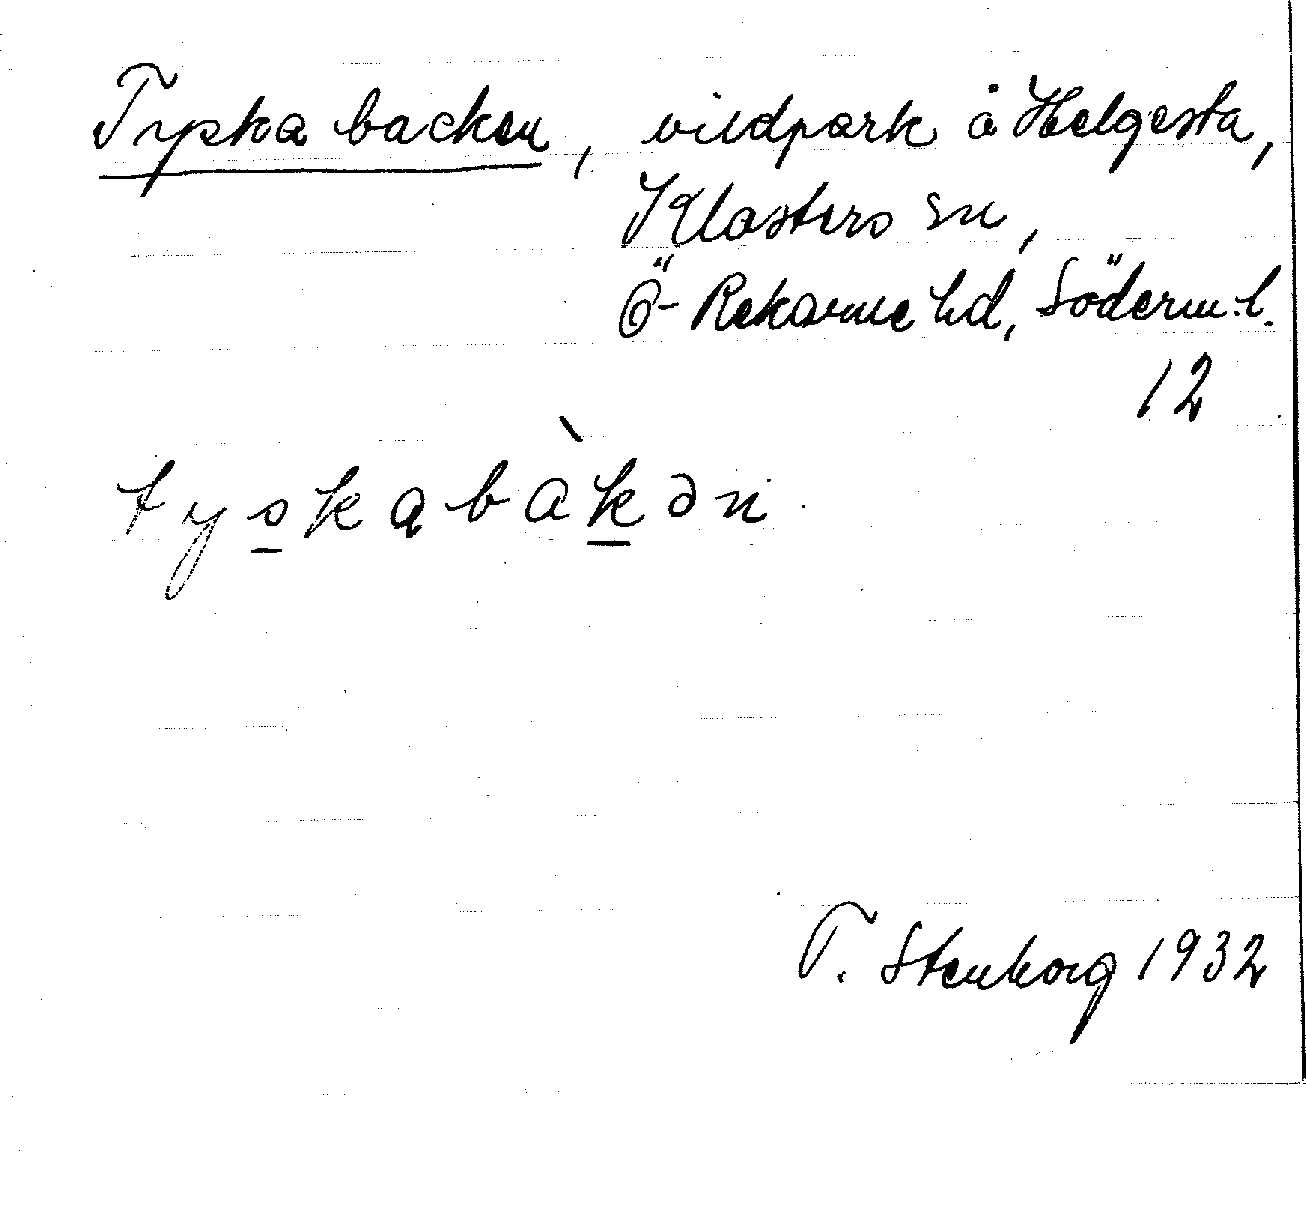 Tyska backen, vildpark å Helgesta,
Klosters sn,
Ö- Rekarne hd, Söderm. l.
12
tyskabàkən
T. Stenborg 1932